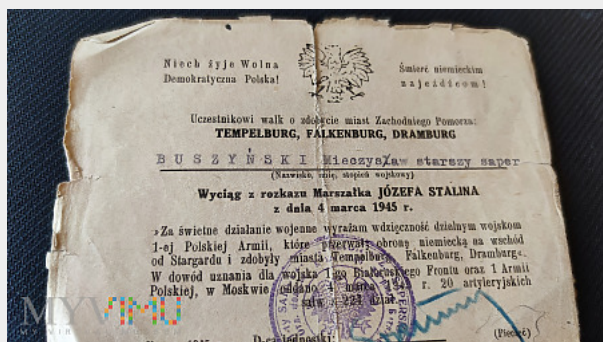 Niech żyje Wolna
Demokratyczna Polska!
Śmierć niemieckim
najeźdźcom!
Uczestnikowi walk o zdobycie miast Zachodniego Pomorza:
TEMPELBURG, FALKENBURG, DRAMBURG
BUSZYŃSKI Mieczysław starszy saper
(Nazwisko, imię, stopień wojskowy)
Wyciąg z rozkazu Marszałka JÓZEFA STALINA
z dnia 4 marca 1945 r.
»Za świetne działanie wojenne wyrażam wdzięczność dzielnym wojskom
1-ej Polskiej Armii, które przerwały obronę niemiecką na wschód
od Stargardu i zdobyły miasta Tempelburg, Falkenburg, Dramburg«.
W dowód uznania dla wojska 1-go Białoruskiego Frontu oraz 1 Armii
Polskiej, w Moskwie oddano 4 marca r. 20 artyleryjskich
salw z 224 dział.
(Pieczęć)
MYVIMU